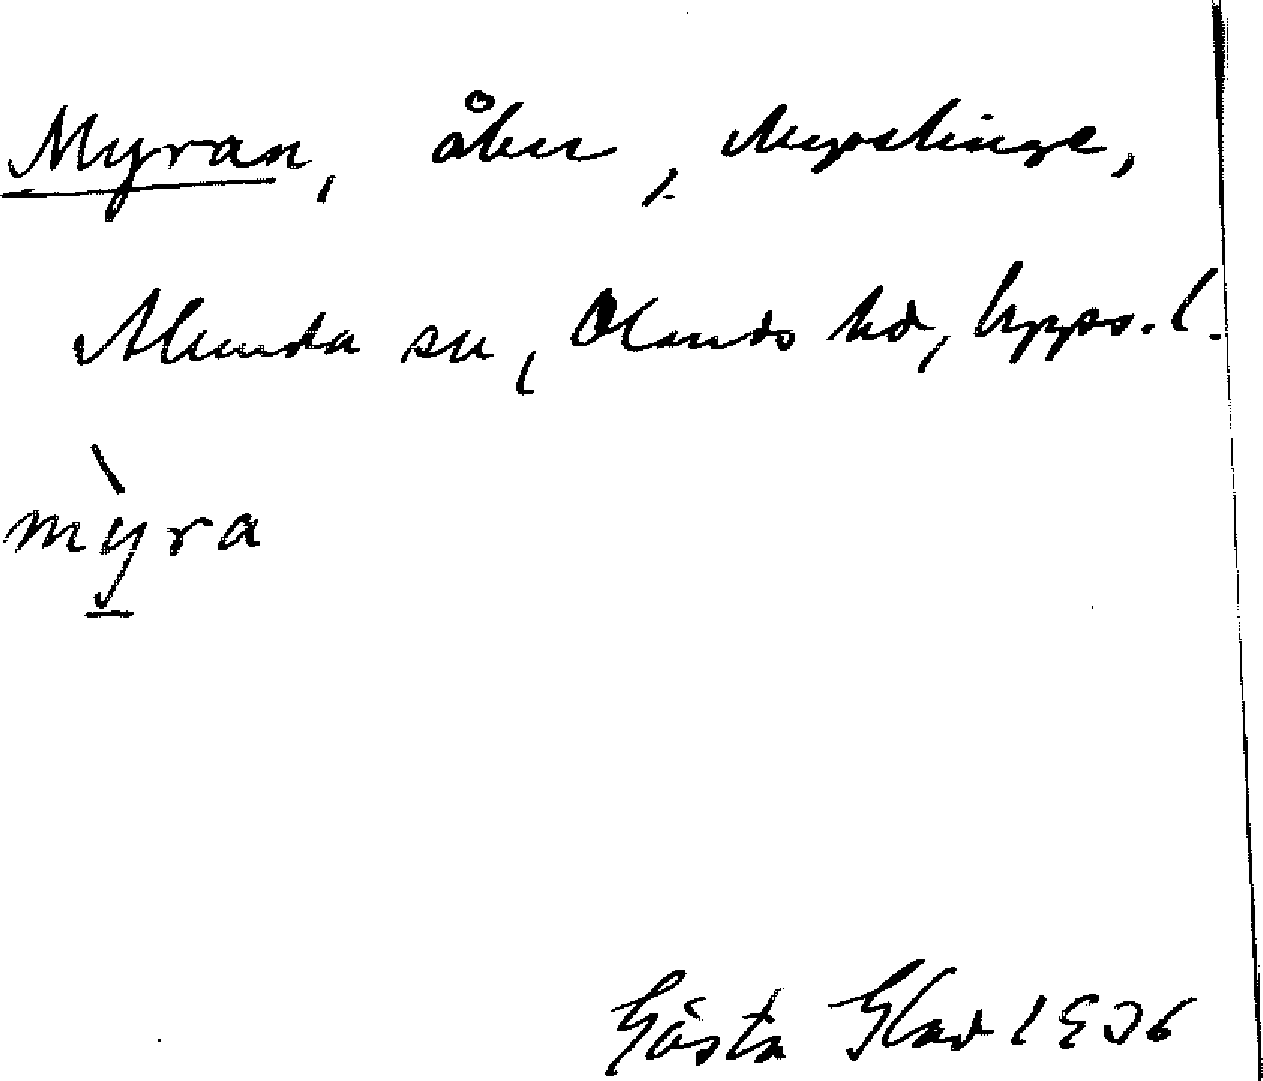 Myran, åker, Myrslinge,
Alunda sn, Olands hd, Upps. l.
mỳra
Gösta Glad 1936